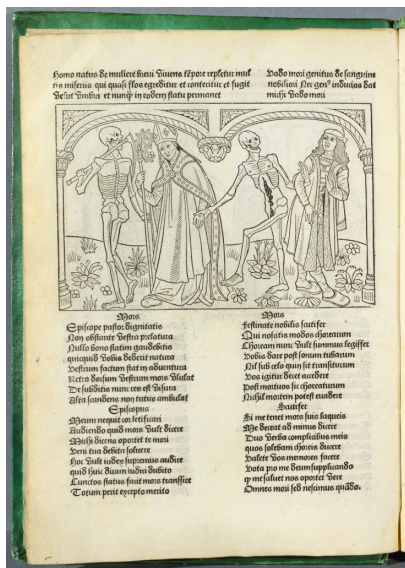 Homo natus de muliere brevi vivens tēpore repletur mul
tis miseriis qui quasi flos egreditur et conteritur et fugit
velut umbra et nunq̄ in eodem statu permanet
Vado mori genitus de sanguine
nobiliori Nec genꝰ inducias dat
michi Vado mori
Mors
Episcope pastor dignitatis
Non obstante vestra prelatura
Nullo bono statim gaudebitis
quicquid vobis dederit natura
Vestrum factum stat in adventura
Retro dorsum vestrum mors ululat
De subditis nunc res est visura
Alta scandens non tutus ambulat
Episcopus
Meum nequit cor letificari
Audiendo quid mors vult dicere
Michi dicens oportet te mori
Veni tua debita solvere
Hoc vult iudex supremus audire
quid huic dicam iudici dubito
Cunctos status facit mors transire
Totum perit excepto merito
Mors
Festinate nobilis scutifer
Qui noscitis modos chorearum
Choream nunc vult summus legiffer
Vobis dare post sonum tubarum
Nil sub celo quin sit transiturum
Vos igitur decet accedere
Post mortuos sic chorearum
Nichil mortem potest evadere
Scutifer
Si me tenet mors suis laqueis
Me deceat ad minus dicere
Duo verba complicibus meis
quos solebam choreis ducere
Valete vos memores facere
Vota pro me deum supplicando
ꝙ me salvet nos oportet vere
Omnes mori sed nescimus quādo.